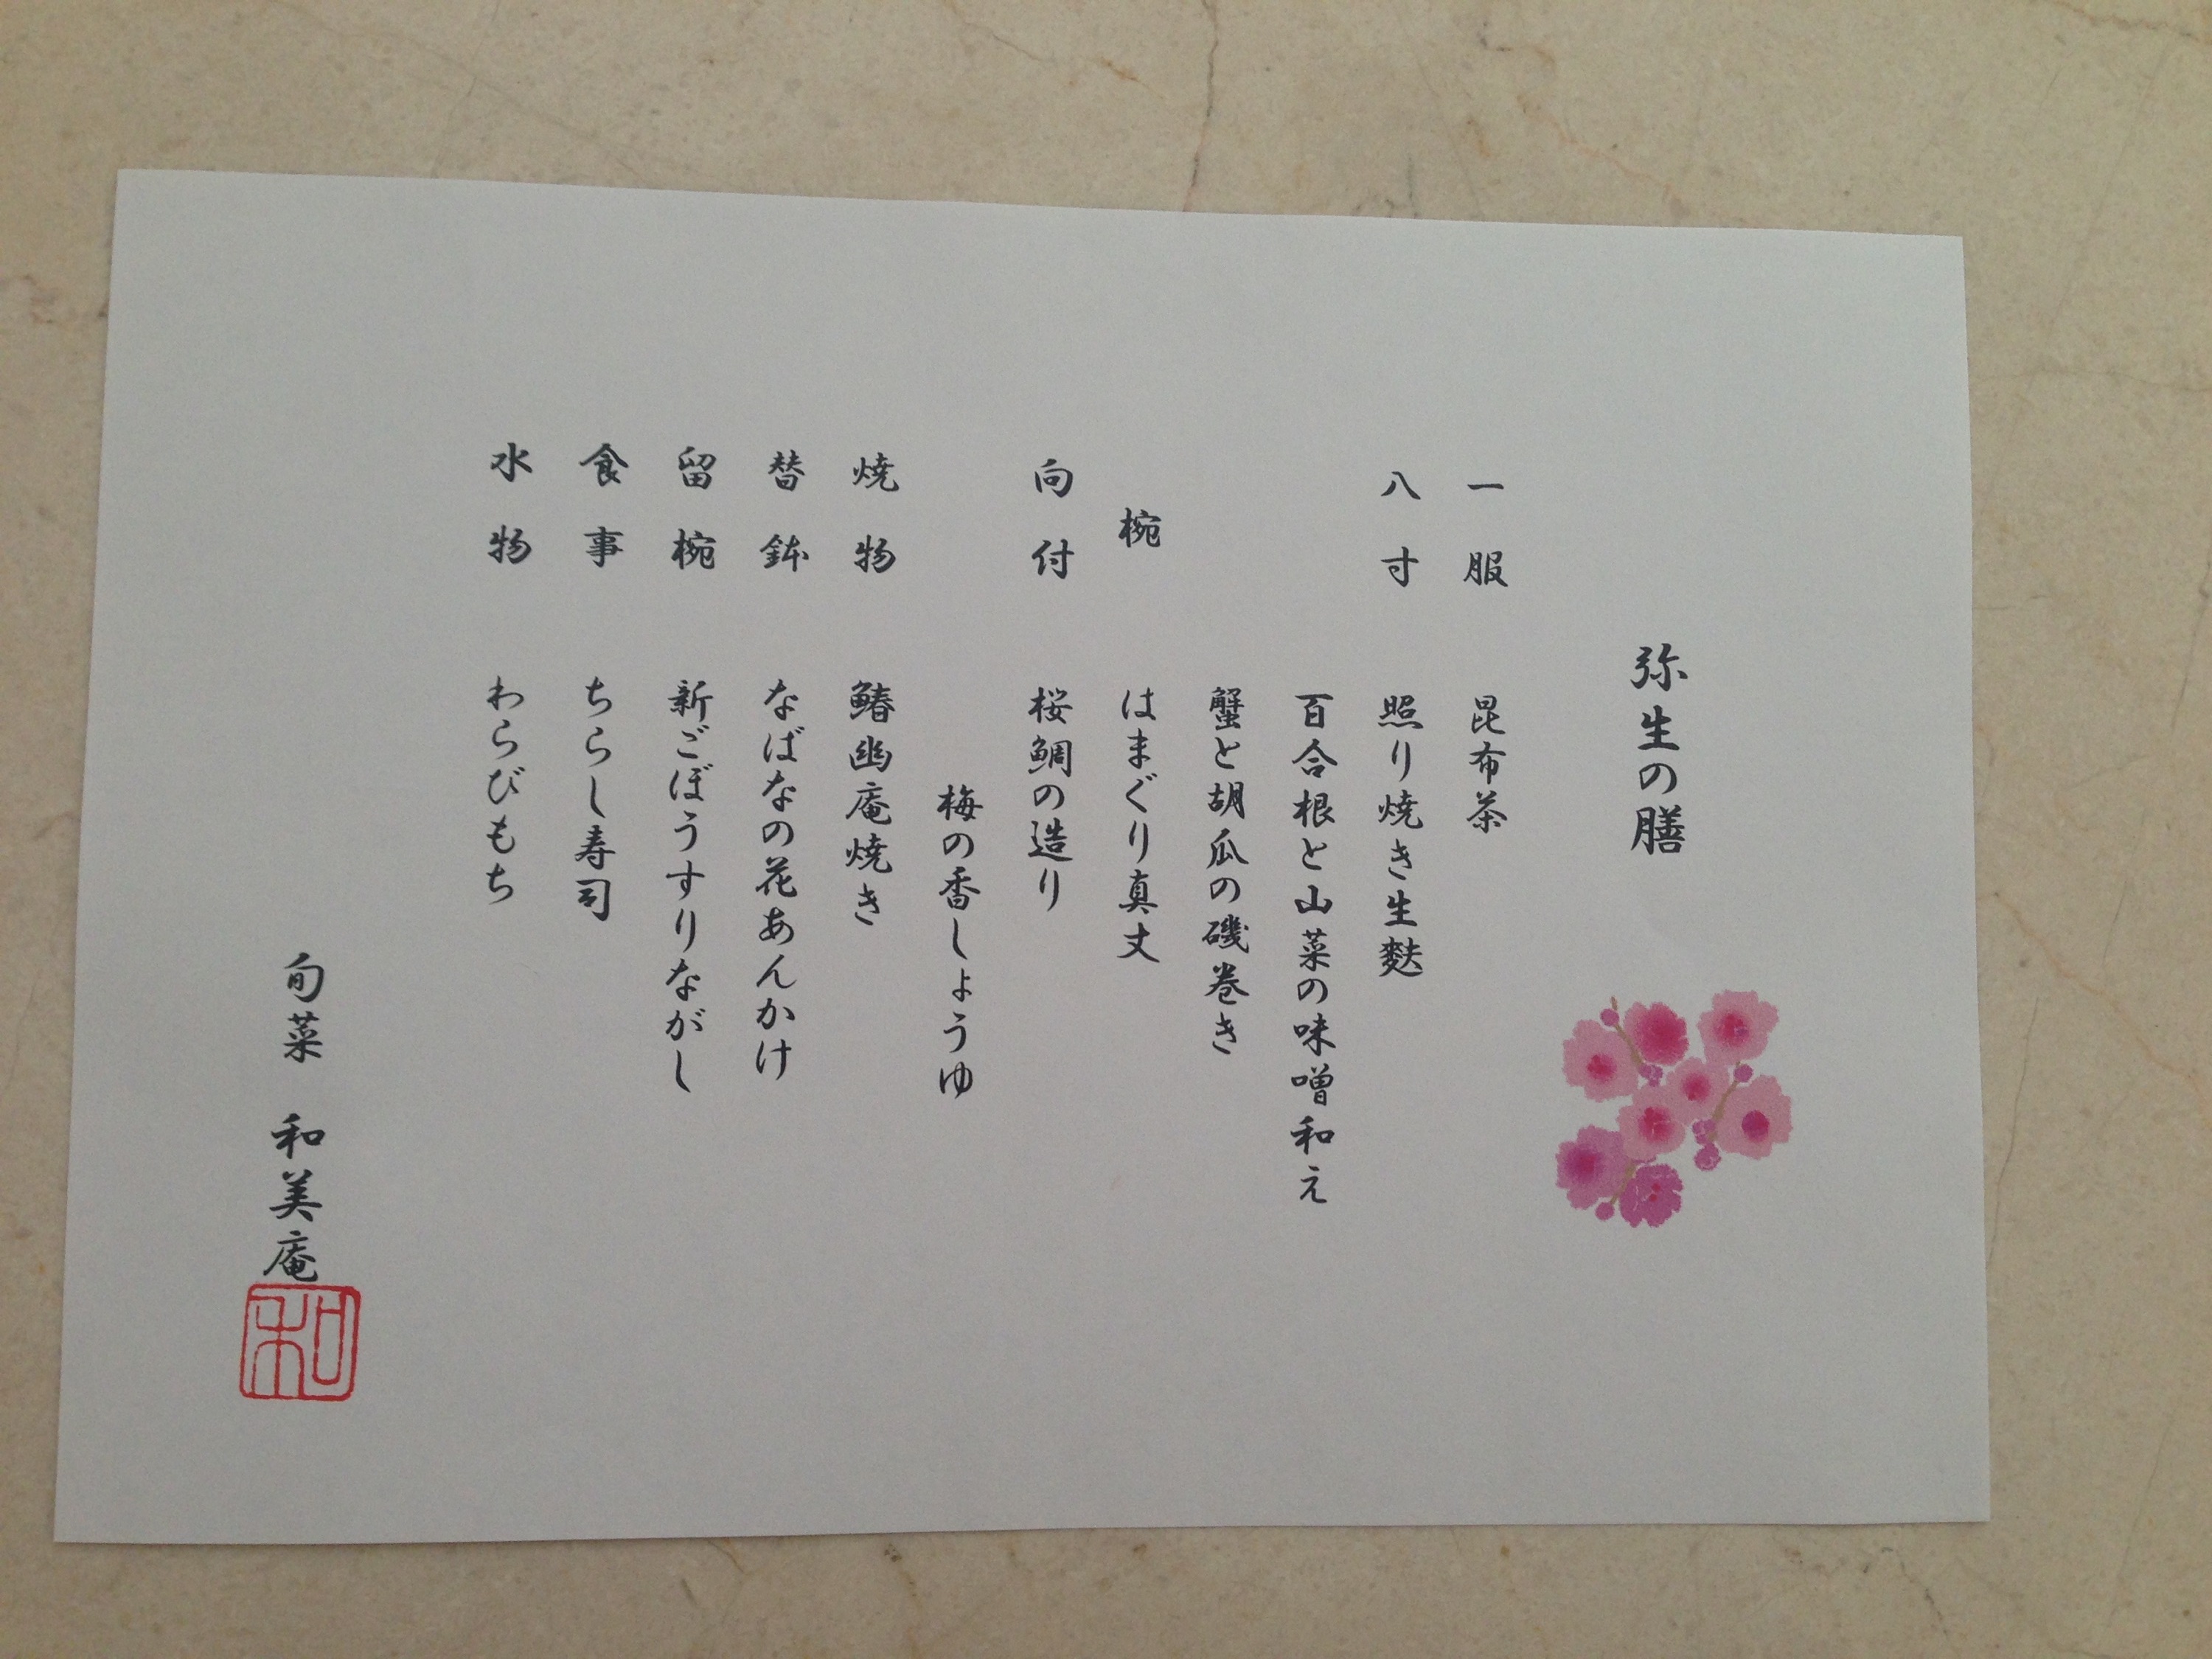 弥生の膳
一服 昆布茶
八寸 照り焼き生麩
百合根と山菜の味噌和え
蟹と胡瓜の磯巻き
椀 はまぐり真丈
向付 桜鯛の造り
梅の香しょうゆ
焼物 鰆幽庵焼き
替鉢 なばなの花あんかけ
留椀 新ごぼうすりながし
食事 ちらし寿司
水物 わらびもち
旬菜 和美庵
和